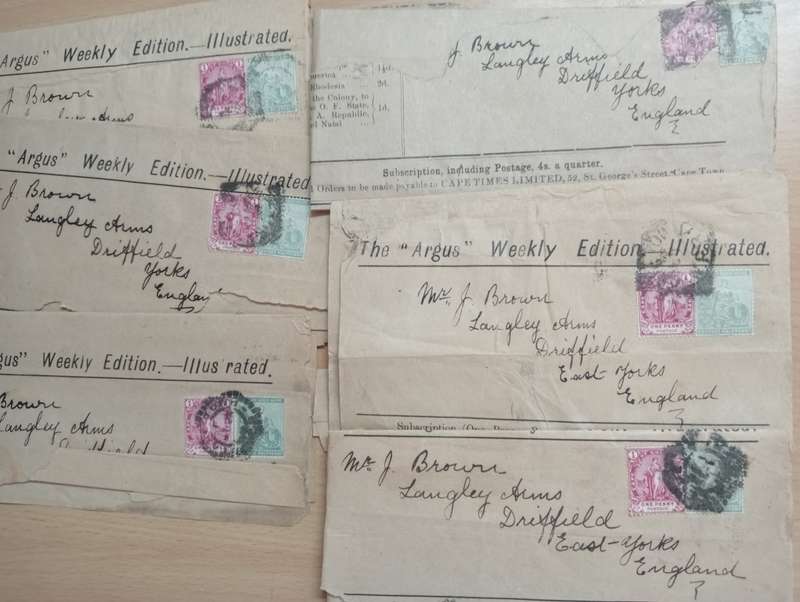 "Argus" Weekly Edition.—Illustrated.
J Brown
Arms
"Argus" Weekly Edition.—Illustrated
J Brown
Langley Arms
Driffield
Yorks
Englan
gus" Weekly Edition.—Illus rated.
Brown
Langley Arms
Driffield
J. Brown
Langley Arms
Driffield
Yorks
England
merica
1d.
Rhodesia
2d.
the Colony, to
e O. F. State,
A. Republic,
1d.
d Natal
Subscription, including Postage, 4s. a quarter.
Orders to be made payable to CAPE TIMES LIMITED, 52, St. George's Street Cape Town
The "Argus" Weekly Edition.—Illustrated.
Mr. J. Brown
Langley Arms
Driffield
East Yorks
England
ONE PENNY
Subscription (One
Mr. J. Brown
Langley Arms
Driffield
East-Yorks
England
ONE PENNY